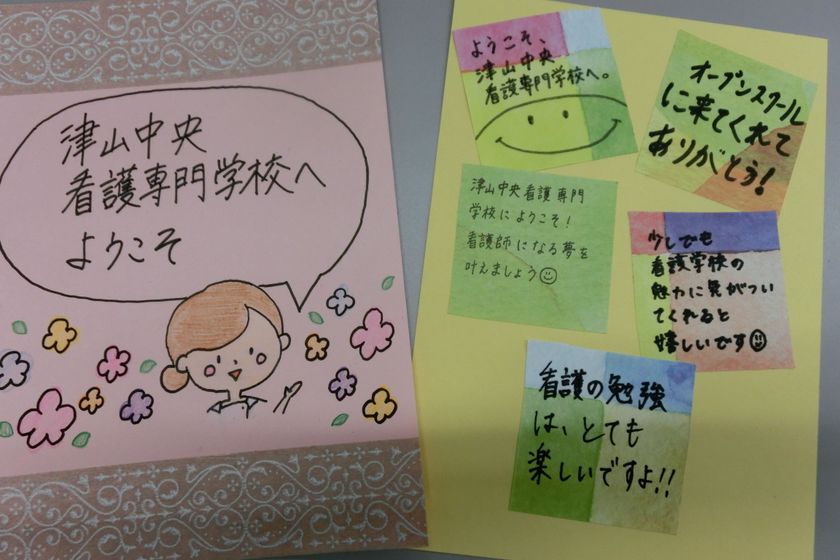 津山中央
看護専門学校へ
ようこそ
ようこそ、
津山中央
看護専門学校へ。
オープンスクール
に来てくれて
ありがとう!
津山中央看護専門
学校にようこそ!
看護師になる夢を
叶えましょう
少しでも
看護学校の
魅力に気がつい
てくれると
嬉しいです
看護の勉強
は、とても
楽しいですよ!!